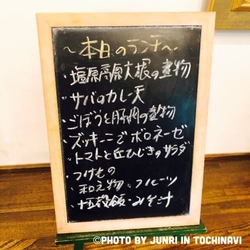 ~本日のランチ~
・塩原高原大根の煮物
・サバのカレー天
・ごぼうと豚肉の煮物
・ズッキーニでボロネーゼ
・トマトと丘ひじきのサラダ
・つけもの
・和え物・フルーツ
・十五穀飯・みそ汁
©PHOTO BY JUNRI IN TOCHINAVI